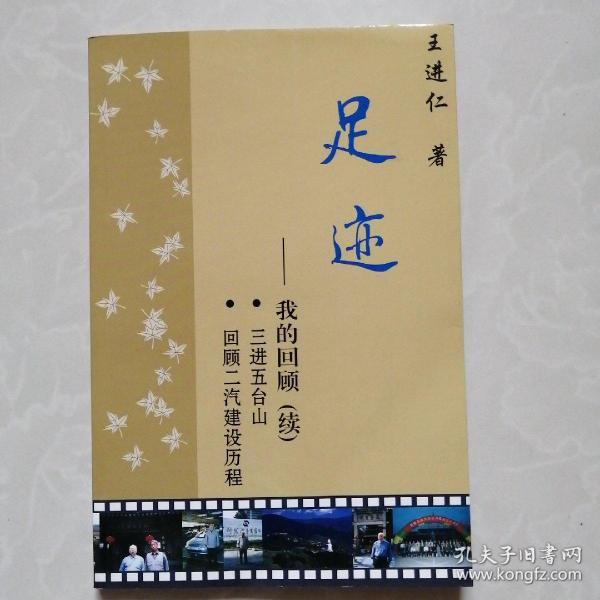 王进仁 著
足迹
——我的回顾(续)
• 三进五台山
• 回顾二汽建设历程
孔夫子旧书网
www.kongfz.com